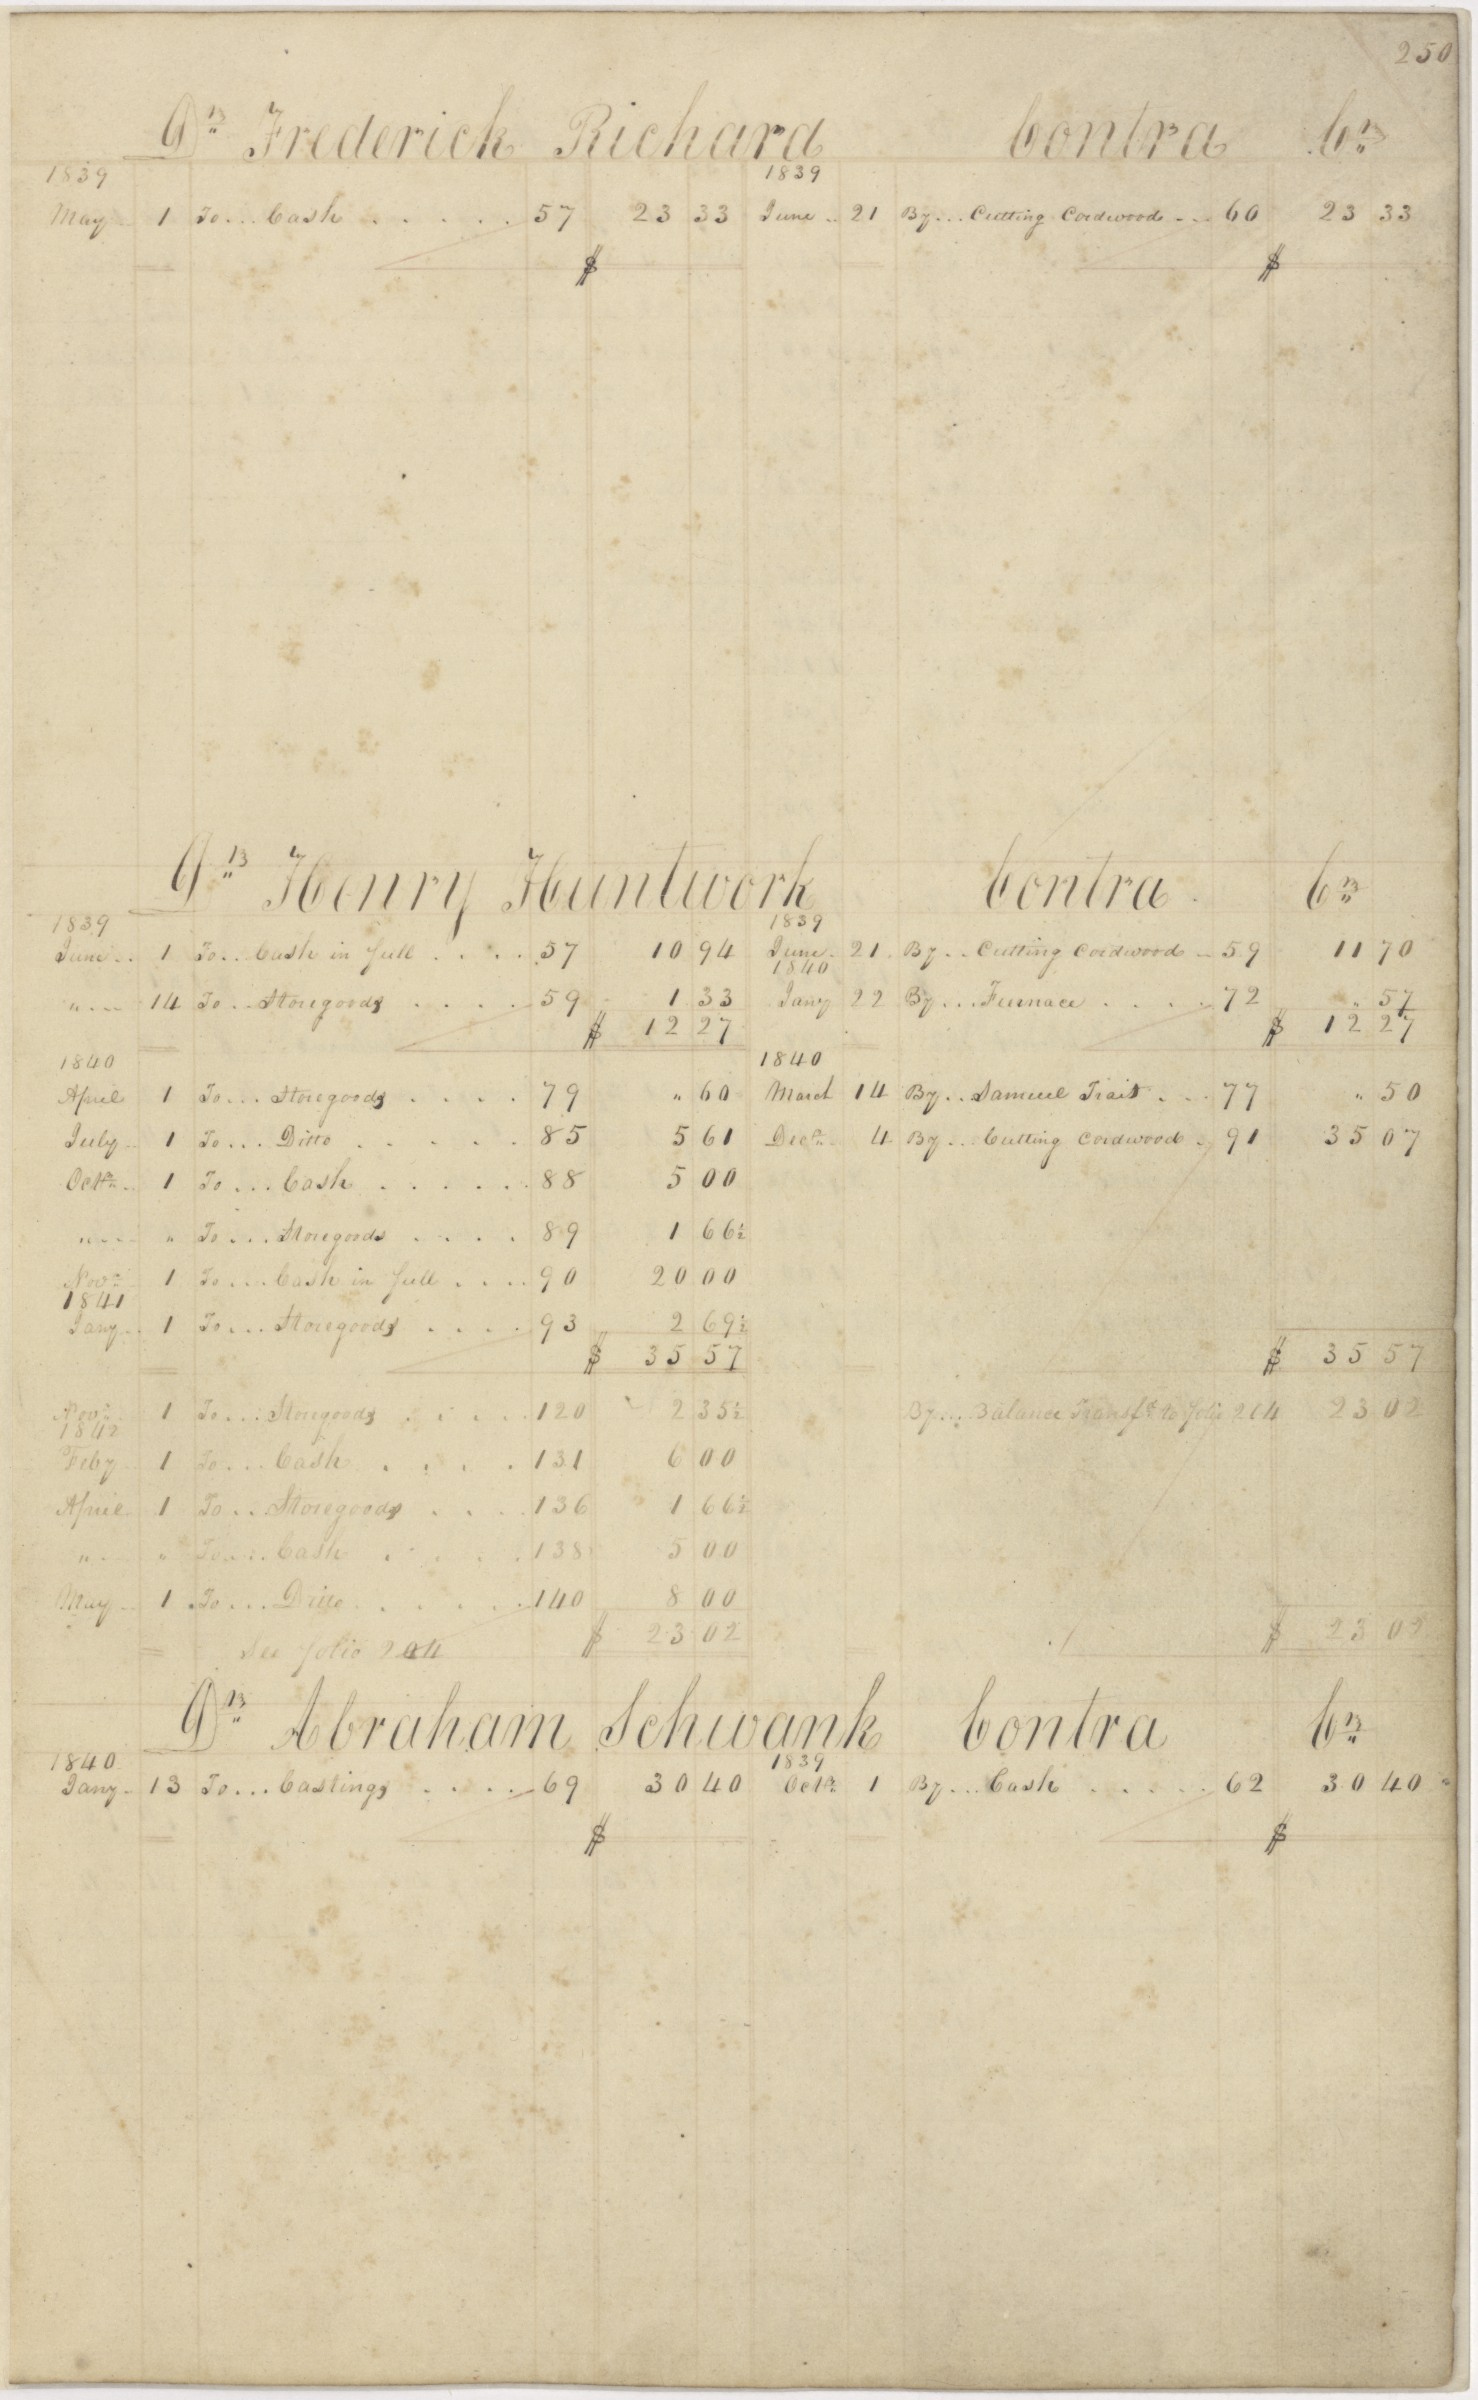 250
Dr Frederick Richard Contra Cr
1839 1839
May 1 To... Cash . . . . . 57 23 33 June .. 21 By... Cutting Cordwood ... 60 23 33
$ $
Dr Henry Huntwork Contra Cr
1839 1839
June .. 1 To.. Cash in full . . . . 57 10 94 June . 21 By.. Cutting Cordwood .. 59 11 70
1840
" ... 14 To.. Storegoods . . . . 59 1 33 Jany 22 By... Furnace . . . . 72 " 57
$ 12 27 $ 12 27
1840 1840
April 1 To... Storegoods . . . . 79 " 60 March 14 By.. Samuel Trait . . . 77 " 50
July .. 1 To... Ditto . . . . . . 85 5 61 Decr 4 By... Cutting Cordwood . 91 35 07
Octr .. 1 To... Cash . . . . . . 88 5 00
" ... " To... Storegoods . . . . 89 1 66½
Novr 1 To... Cash in full . . . . 90 20 00
1841
Jany .. 1 To... Storegoods . . . . 93 2 69½
$ 35 57 $ 35 57
Novr 1 To... Storegoods . . . . 120 2 35½ By... Balance Transfd to folio 264 23 02
1842
Feby 1 To... Cash . . . . . 131 6 00
April 1 To.. Storegoods . . . 136 1 66½
" ... " To... Cash . . . . . 138 5 00
May .. 1 To... Ditto . . . . . . 140 8 00
See folio 264 $ 23 02 $ 23 02
Dr Abraham Schwank Contra Cr
1840 1839
Jany . 13 To... Castings . . . . 69 30 40 Octr 1 By... Cash . . . . . 62 30 40
$ $